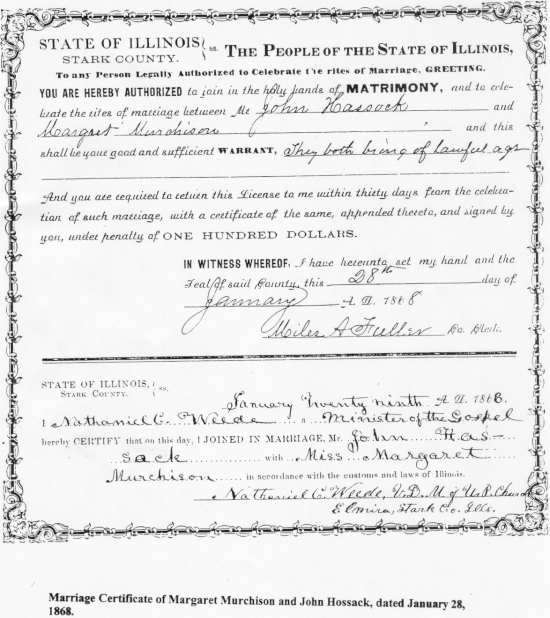 STATE OF ILLINOIS ss. THE PEOPLE OF THE STATE OF ILLINOIS,
STARK COUNTY.
To any Person Legally Authorized to Celebrate the rites of Marriage, GREETING.
YOU ARE HEREBY AUTHORIZED to join in the holy bands of MATRIMONY, and to cele-
brate the rites of marriage between Mr John Hassock and
Margret Murchison " and this
shall be your good and sufficient WARRANT, They both being of lawful age
And you are required to return this License to me within thirty days from the celebra-
tion of such marriage, with a certificate of the same, appended thereto, and signed by
you, under penalty of ONE HUNDRED DOLLARS.
IN WITNESS WHEREOF, I have hereunto set my hand and the
Seal of said County, this 28th day of
January A. D. 1868
Miles A Fuller Co. Clerk.
STATE OF ILLINOIS, ss.
STARK COUNTY.
January Twenty ninth A. D. 1868.
I Nathaniel C. Weede a Minister of the Gospel
hereby CERTIFY that on this day, I JOINED IN MARRIAGE, Mr. John Has-
sack with Miss Margaret
Murchison in accordance with the customs and laws of Illinois.
Nathaniel C. Weede, V. D. M of U. P. Church
Elmira, Stark Co. Ills.
Marriage Certificate of Margaret Murchison and John Hossack, dated January 28,
1868.